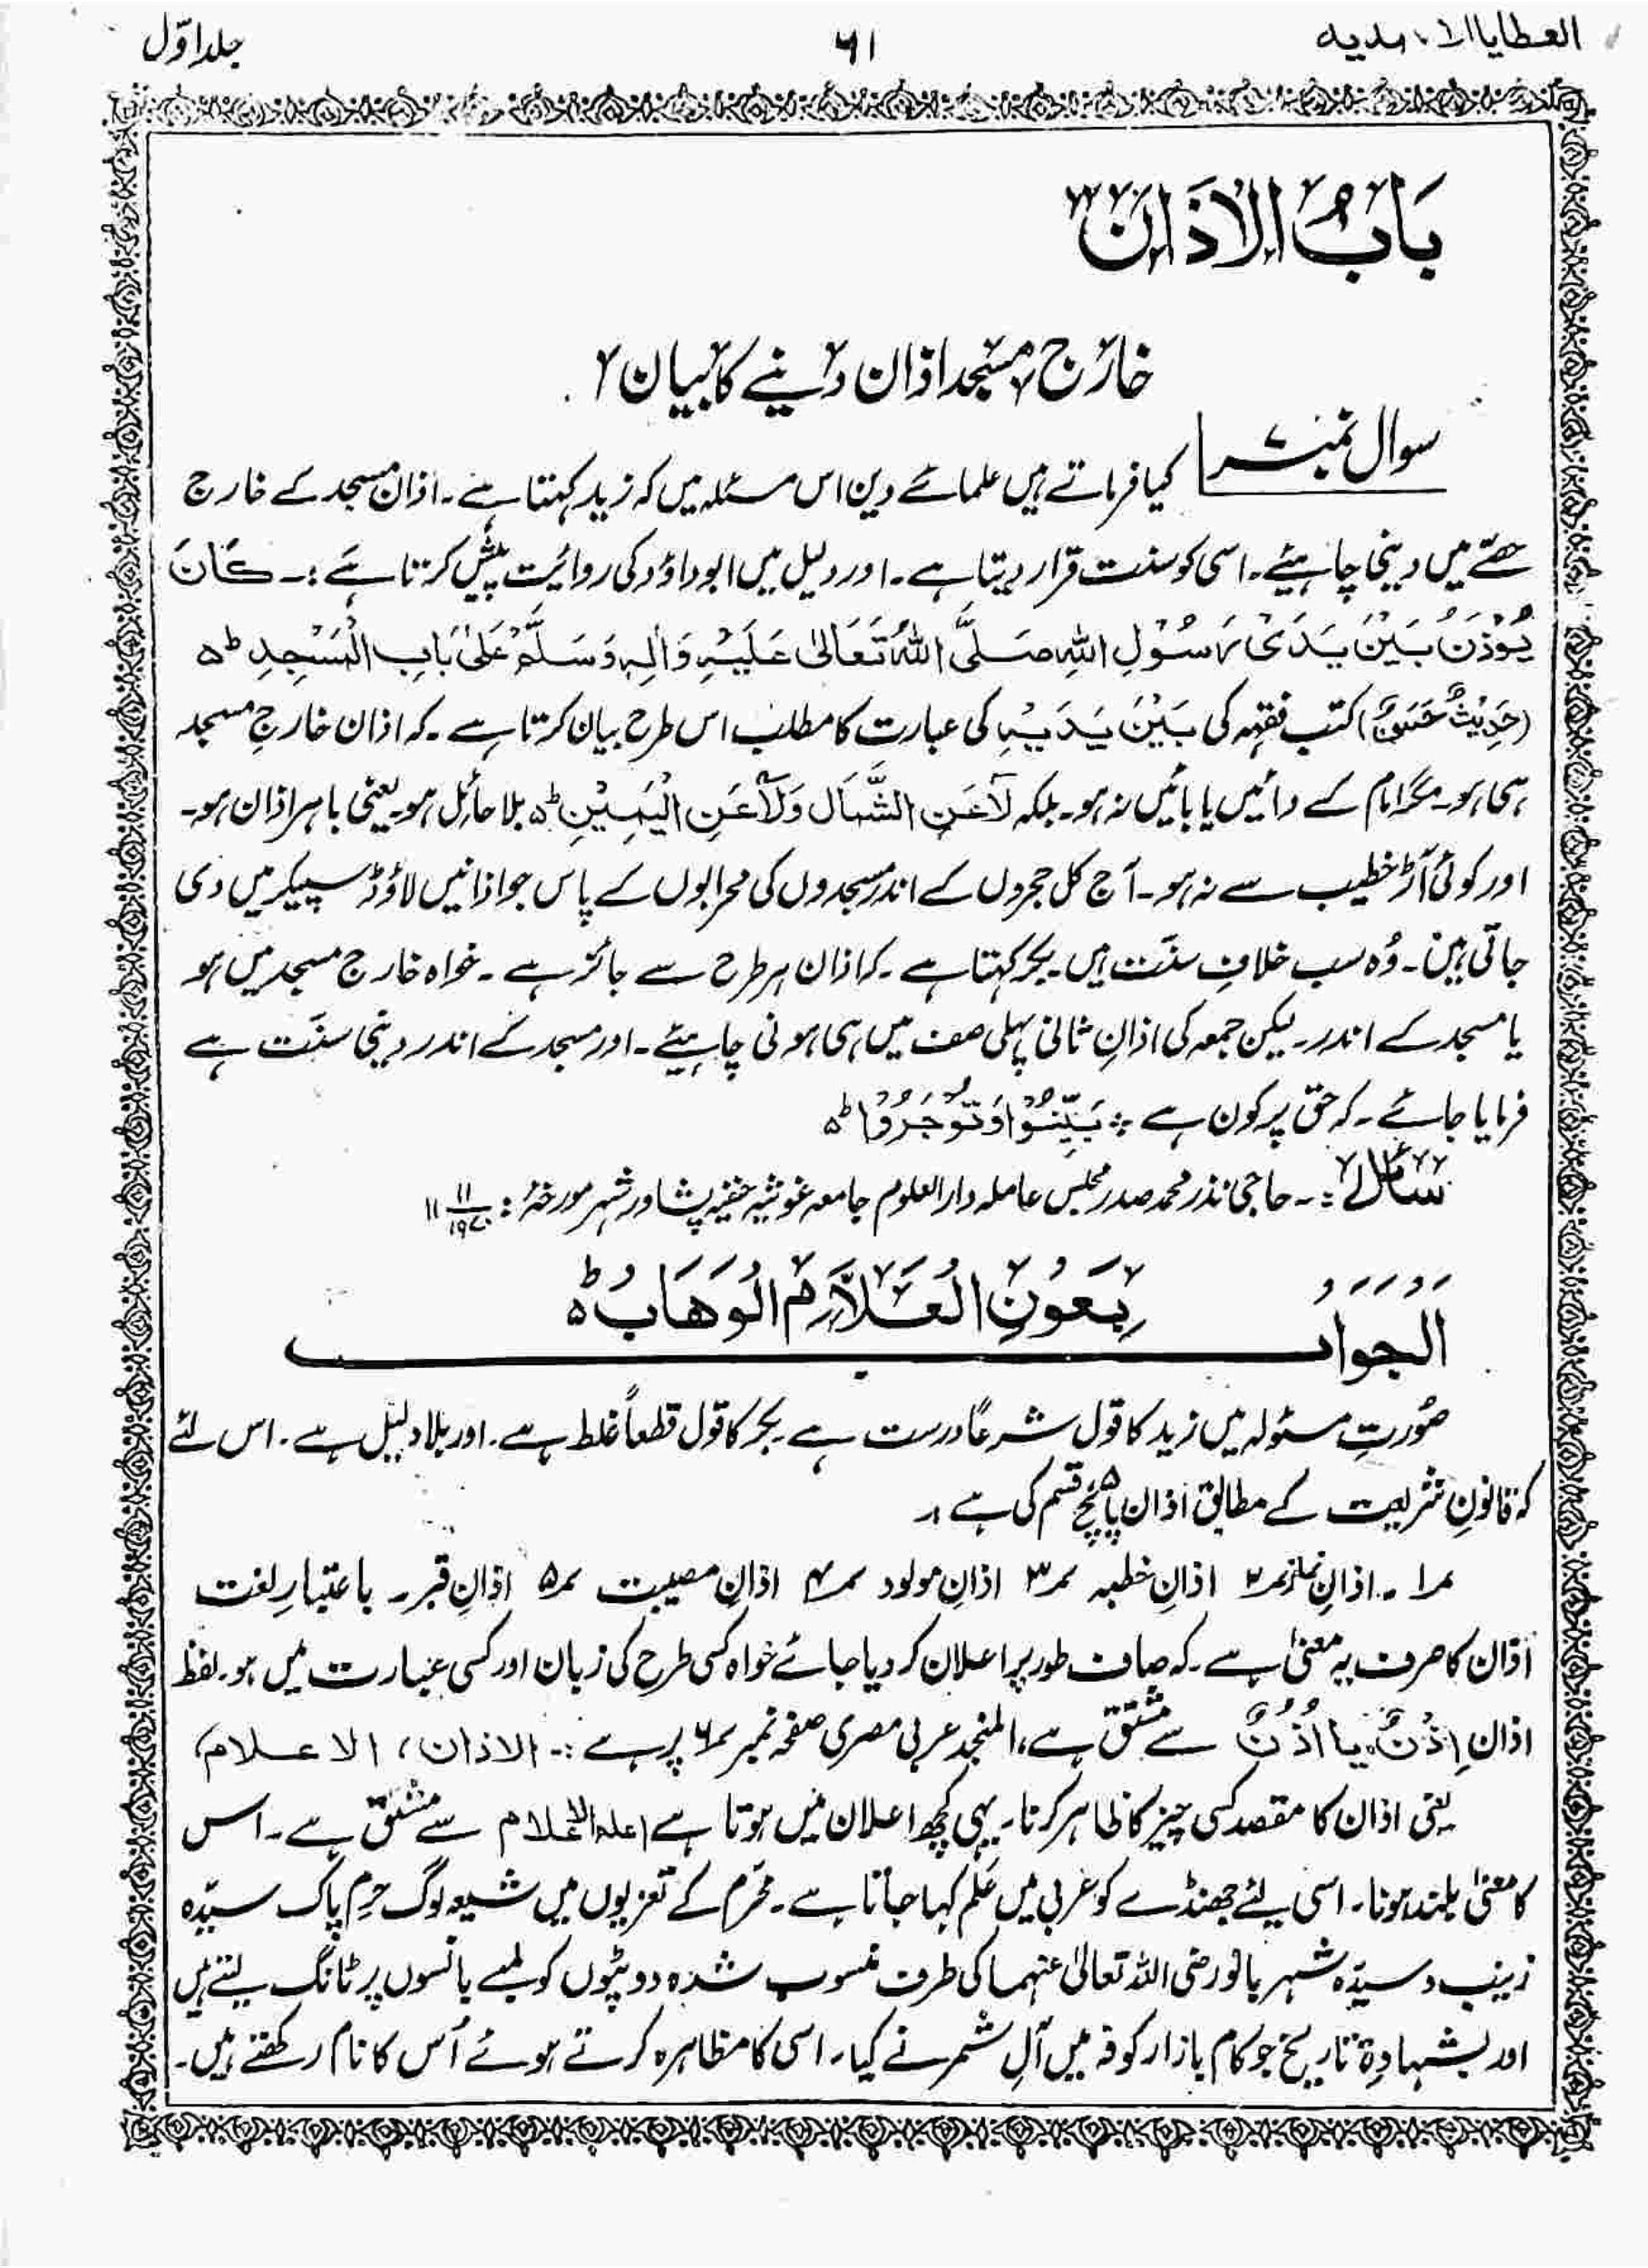 العطایا الاحمدیہ ۶۱ جلد اوّل
بَابُ الْاَذَانِ
خارج مسجد اذان دینے کا بیان
سوال نمبر ۷
کیا فرماتے ہیں علمائے دین اس مسئلہ میں کہ زید کہتا ہے۔ اذان مسجد کے خارج
حصّے میں دینی چاہئیے۔ اسی کو سنت قرار دیتا ہے۔ اور دلیل میں ابوداؤد کی روائیت پیش کرتا ہے :۔ کَانَ
یُوْذَنُ بَیْنَ یَدَیْ رَسُوْلِ اللّٰہِ صَلَّی اللّٰہُ تَعَالٰی عَلَیْہِ وَاٰلِہٖ وَسَلَّمَ عَلٰی بَابِ الْمَسْجِدِ ط ہ
(حَدِیْثٌ حَسَنٌ) کتب فقہہ کی بَیْنَ یَدَیْہِ کی عبارت کا مطلب اس طرح بیان کرتا ہے۔ کہ اذان خارجِ مسجد
ہی ہو۔ مگر امام کے دائیں یا بائیں نہ ہو۔ بلکہ لَا عَنِ الشَّمَالِ وَلَا عَنِ الْیَمِیْنِ ط ہ بلا حائل ہو۔ یعنی باہر اذان ہو۔
اور کوئی آڑ خطیب سے نہ ہو۔ آج کل حجروں کے اندر مسجدوں کی محرابوں کے پاس جو اذانیں لاؤڈ سپیکر میں دی
جاتی ہیں۔ وُہ سب خلافِ سنّت ہیں۔ بکر کہتا ہے۔ کہ اذان ہر طرح سے جائز ہے۔ خواہ خارج مسجد میں ہو
یا مسجد کے اندر۔ لیکن جمعہ کی اذانِ ثانی پہلی صف میں ہی ہونی چاہئیے۔ اور مسجد کے اندر دینی سنّت ہے
فرمایا جائے۔ کہ حق پر کون ہے ؛ بَیِّنُوْا وَتُوْجَرُوْا ط ہ
سائل :۔ حاجی نذر محمد صدر مجلس عاملہ دارالعلوم جامعہ غوثیہ حنفیہ پشاور شہر مورخہ : ۱۱ ۱۱/۱۹۷۰
اَلْجَوَابُ بِعَوْنِ الْعَلَّامِ الْوَھَابُ ط ہ
صُورتِ مسئولہ میں زید کا قول شرعاً درست ہے۔ بکر کا قول قطعاً غلط ہے۔ اور بلا دلیل ہے۔ اس لئے
کہ قانونِ شریعت کے مطابق اذان پانچ ۵ قسم کی ہے ۱۔
۱؎ ۔ اذانِ نماز ۲؎ اذانِ خطبہ ۳؎ اذانِ مولود ۴؎ اذانِ مصیبت ۵؎ اذانِ قبر۔ باعتبارِ لغت
اذان کا صرف یہ معنیٰ ہے۔ کہ صاف طور پر اعلان کر دیا جائے خواہ کسی طرح کی زبان اور کسی عبارت میں ہو۔ لفظ
اذان اِذْنٌ یا اُذُنٌ سے مشتق ہے، المنجد عربی مصری صفحہ نمبر ۶؎ پر ہے :۔ الاذان، الاعلام،
یعنی اذان کا مقصد کسی چیز کا ظاہر کرنا۔ یہی کچھ اعلان میں ہوتا ہے الاعلام سے مشتق ہے۔ اس
کا معنیٰ بلند ہونا۔ اسی لئے جھنڈے کو عربی میں عَلَم کہا جاتا ہے۔ محرّم کے تعزیوں میں شیعہ لوگ حرِم پاک سیّدہ
زینب و سیّدہ شہر بانو رضی اللہ تعالیٰ عنہما کی طرف منسوب شدہ دوپٹوں کو لمبے بانسوں پر ٹانگ لیتے ہیں
اور بشہادۃِ تاریخ جو کام بازارِ کوفہ میں آلِ شمر نے کیا۔ اسی کا مظاہرہ کرتے ہوئے اُس کا نام رکھتے ہیں۔